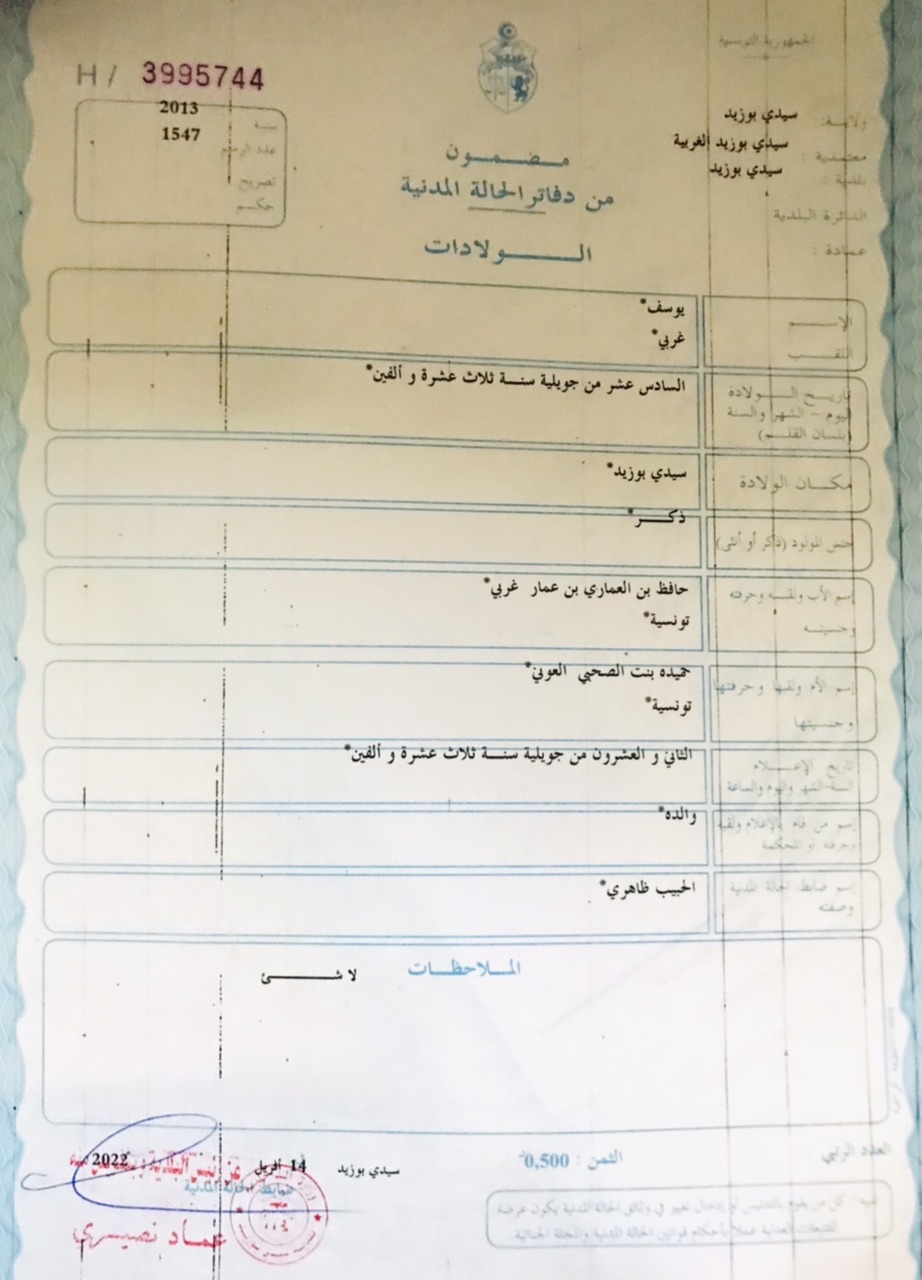 الجمهورية التونسية
H / 3995744
ولاية : سيدي بوزيد
معتمدية : سيدي بوزيد الغربية
بلدية : سيدي بوزيد
الدائرة البلدية
عمادة :
سنة 2013
عدد الرسم 1547
تصريح
حكم
مضمون
من دفاتر الحالة المدنية
الولادات
الإسم يوسف*
اللقب غربي*
تاريخ الولادة السادس عشر من جويلية سنة ثلاث عشرة و ألفين*
اليوم - الشهر والسنة
(بلسان القلم)
مكان الولادة سيدي بوزيد*
جنس المولود (ذكر أو أنثى) ذكر*
إسم الأب ولقبه وحرفته حافظ بن العماري بن عمار غربي*
وجنسيته تونسية*
إسم الأم ولقبها وحرفتها حميده بنت الصحبي العوني*
وجنسيتها تونسية*
تاريخ الإعلام الثاني و العشرون من جويلية سنة ثلاث عشرة و ألفين*
السنة-الشهر واليوم والساعة
إسم من قام بالإعلام ولقبه والده*
وحرفته أو المحكمة
إسم ضابط الحالة المدنية الحبيب ظاهري*
وصفته
الملاحظات لا شئ
العدد الرتبي
الثمن : 0,500
سيدي بوزيد 14 أفريل 2022
ضابط الحالة المدنية
عماد نصيري
تنبيه : كل من يقوم بالتدليس أو إدخال تغيير في وثائق الحالة المدنية يكون عرضة
للتتبعات العدلية عملا بأحكام قوانين الحالة المدنية والمجلة الجنائية.